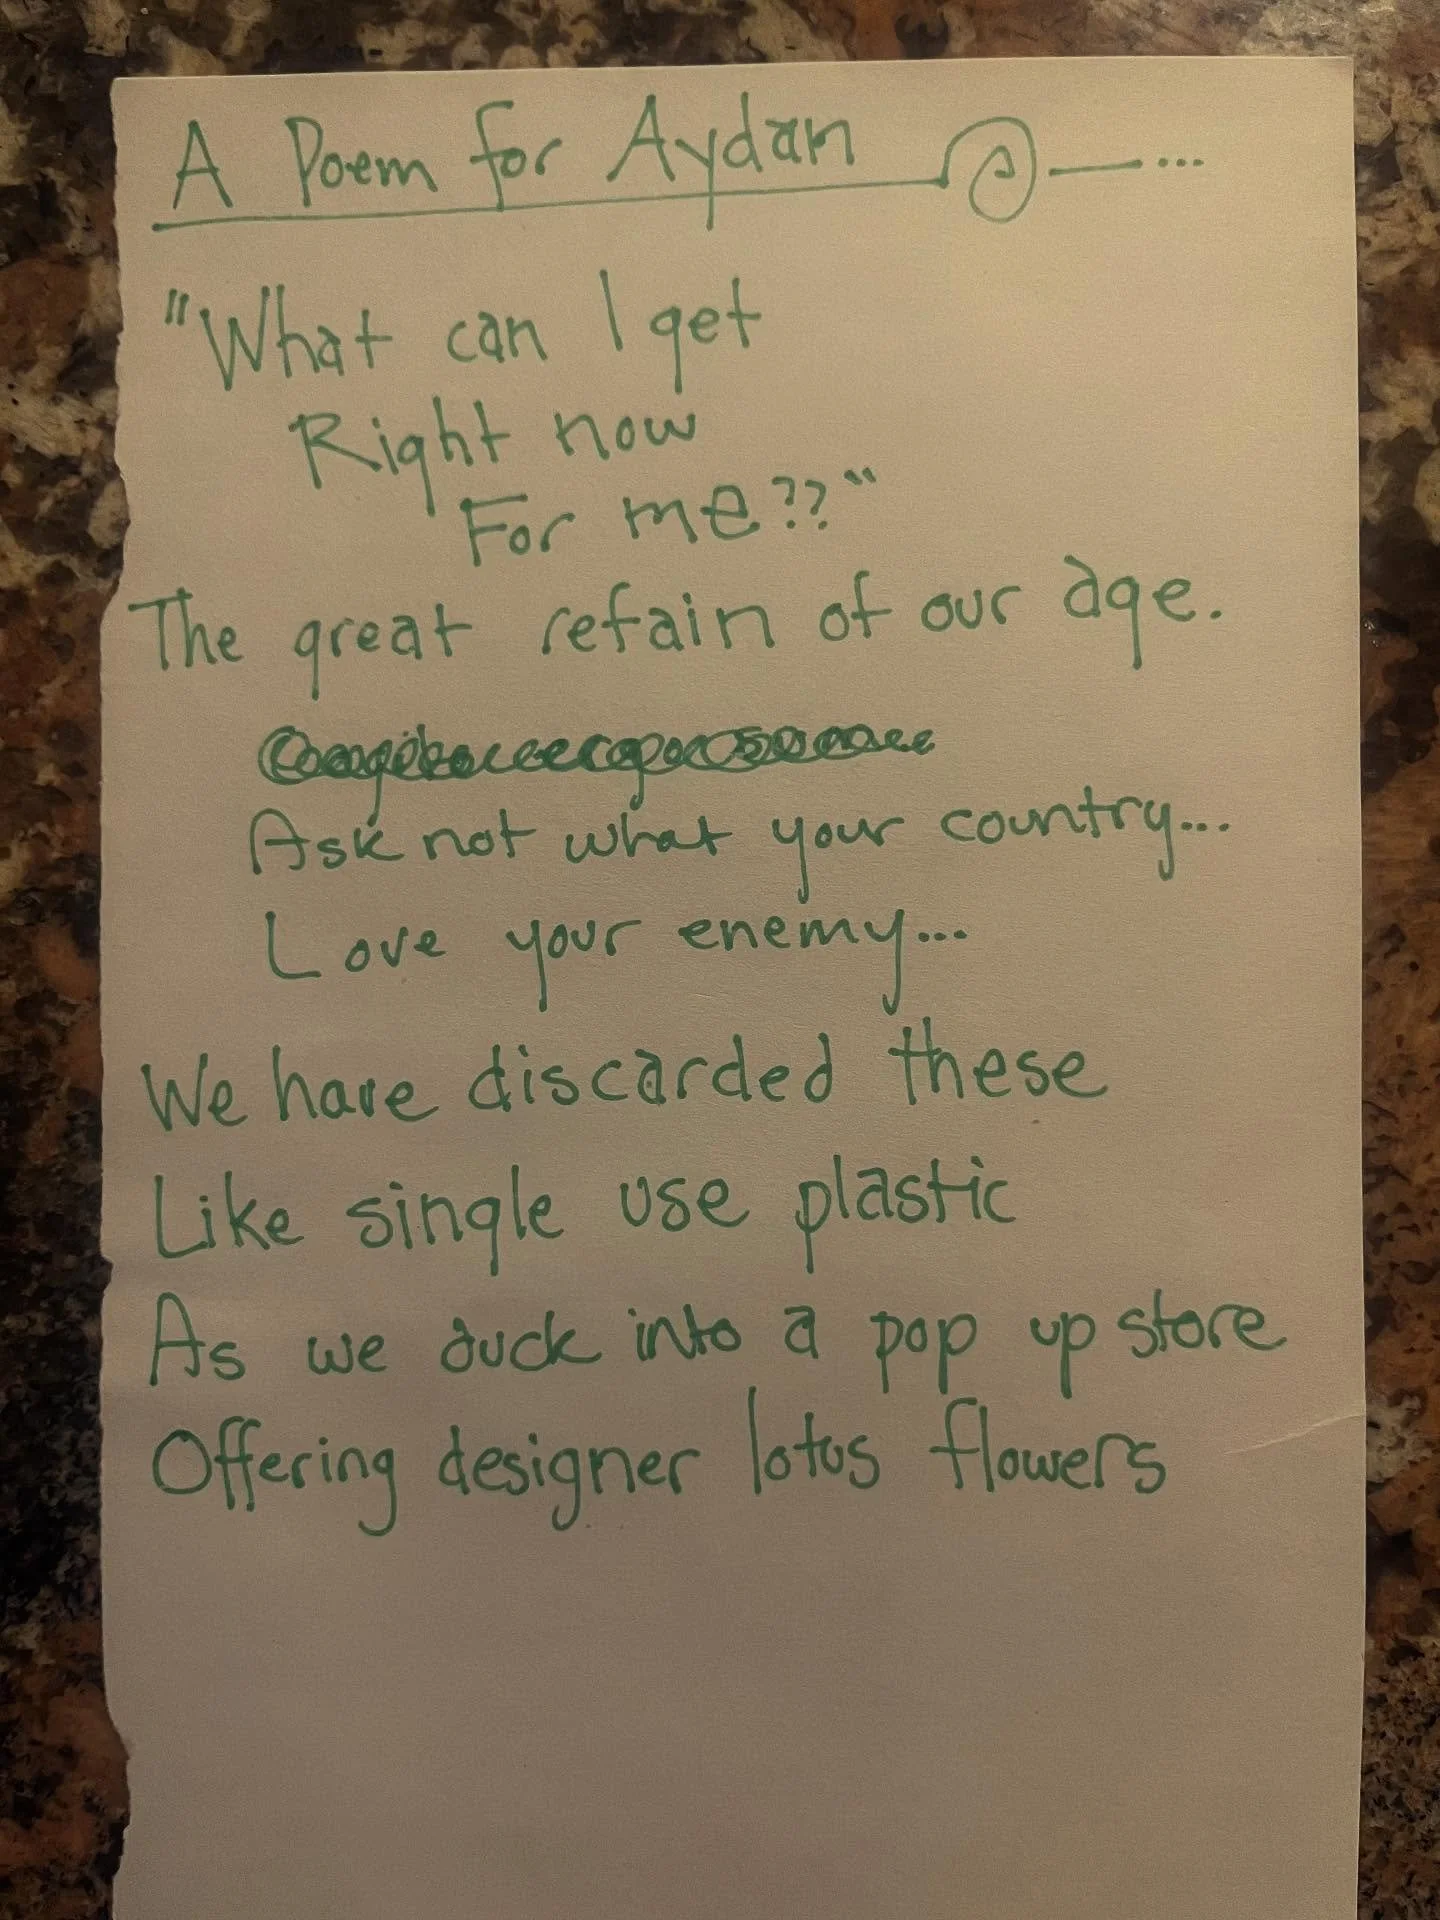 A Poem for Aydan
"What can I get
Right now
For me??"
The great refain of our age.
Ask not what your country...
Love your enemy...
We have discarded these
Like single use plastic
As we duck into a pop up store
Offering designer lotus flowers